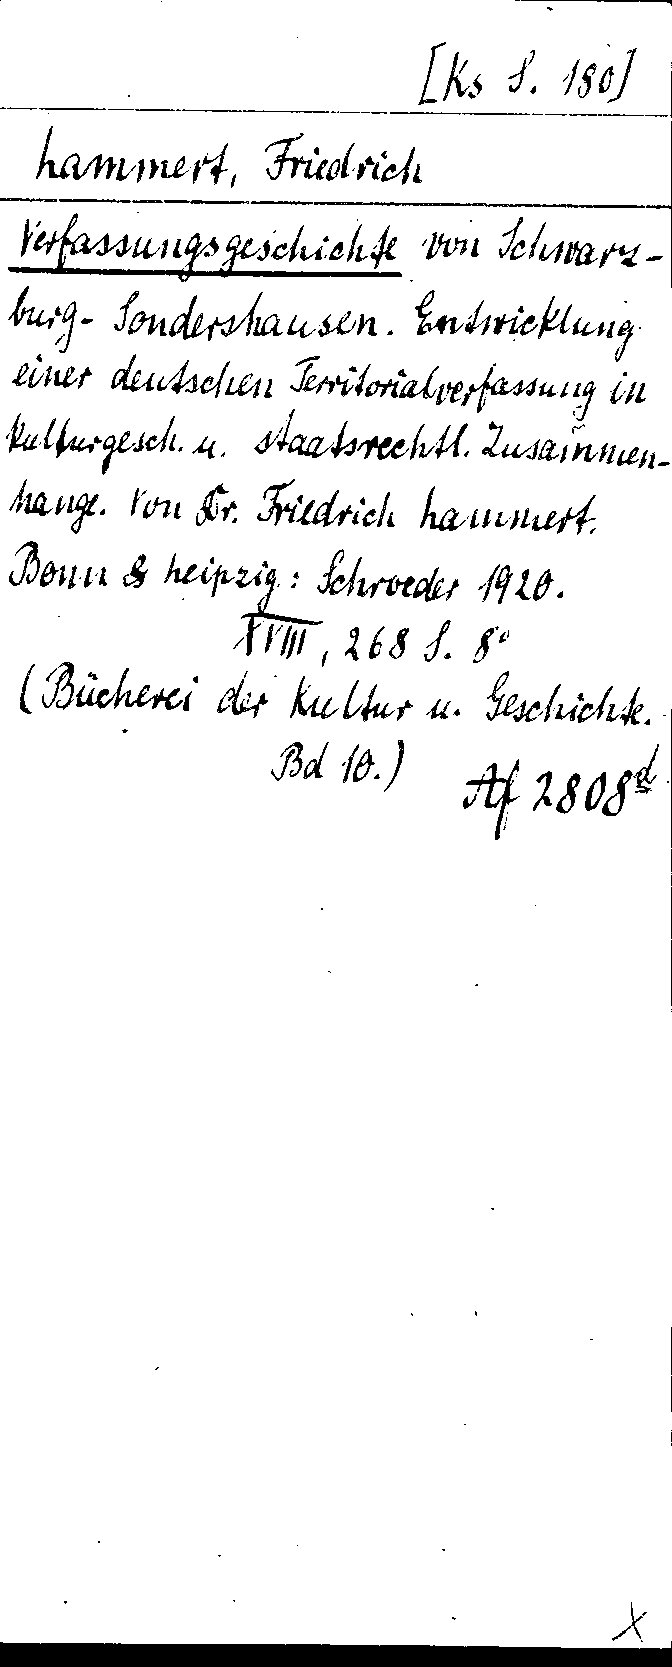 [Ks S. 180]
Lammert, Friedrich
Verfassungsgeschichte von Schwarz-
burg-Sondershausen. Entwicklung
einer deutschen Territorialverfassung in
kulturgesch. u. staatsrechtl. Zusammen-
hange. Von Dr. Friedrich Lammert.
Bonn & Leipzig: Schroeder 1920.
XVIII, 268 S. 8°
(Bücherei der Kultur u. Geschichte.
Bd 10.)
Af 2808d
X